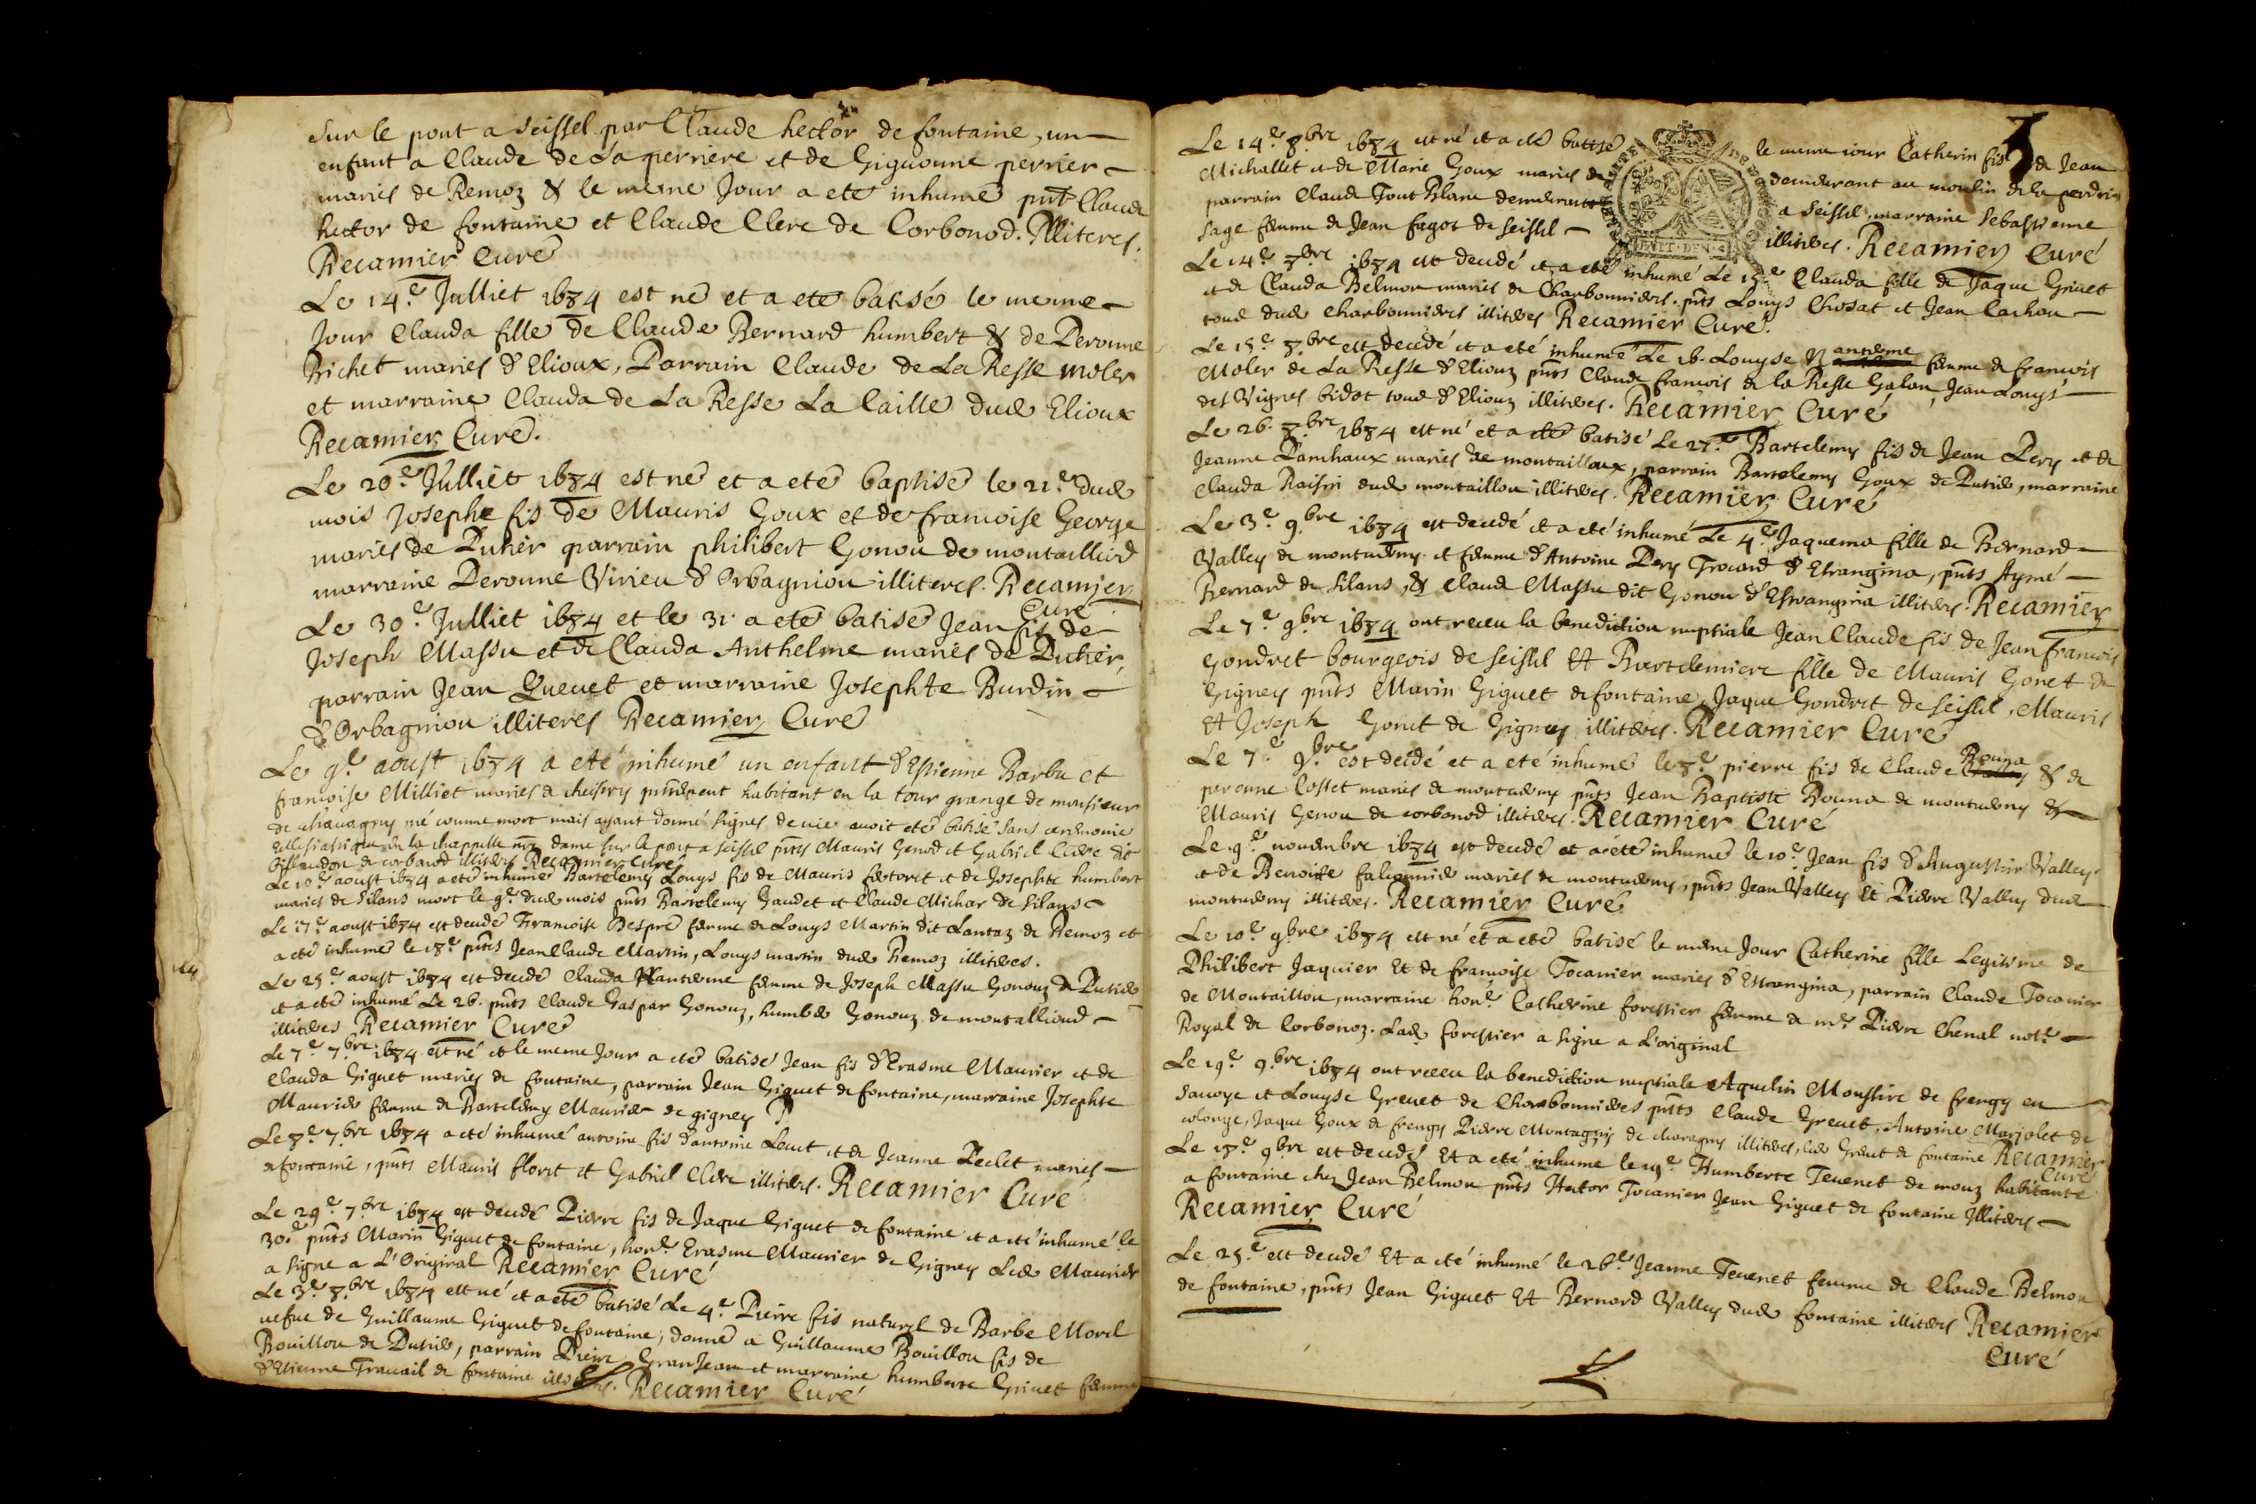 Sur le pont a Seissel par Claude hector de fontaine, un
enfant a Claude de La perriere et de Giguonne perrier
mariés de Remoz & le meme Jour a eté inhumé pnt Claude
hector de fontaine et Claude Clerc de Corbonod. Illiteres.
Recamier Curé
Le 14e Julliet 1684 est né et a eté batisé le meme
Jour Clauda fille de Claude Bernard humbert & de Peronne
Bichet mariés d'Elioux, Parrain Claude de La Resse Moler
et marraine Clauda de La Resse La Caille dud Elioux
Recamier Curé.
Le 20e Julliet 1684 est né et a eté baptisé le 21e dud
mois Josephe fis de Mauris Goux et de francoise George
mariés de Puthier parrain philibert Gonou de montailliod
marraine Peronne Virieu d'Orbagniou illiteres. Recamier
Curé
Le 30e Julliet 1684 et le 31 a eté batisé Jean fis de
Joseph Massu et de Clauda Anthelme mariés de Puthier,
parrain Jean Quenet et marraine Josephte Burdin
d'Orbagniou illiteres Recamier Curé
Le 9e aoust 1684 a eté inhumé un enfant d'Estienne Barbu et
francoise Milliet mariés a habitant en la tour grange de monsieur
de chavagny né comme mort mais ayant donné signes de vie avoit eté batisé sans ceremonie
de la chappelle nre dame sur le pont a Seissel pnts Mauris Genod et Gabriel Clere dit
de corbonod illiteres Recamier Curé
Le 10e aoust 1684 a eté inhumé Bartelemy Louys fis de Mauris et de Josephte humbert
mariés de Silans mort le 9e dud mois pnts Bartelemy Gaudet et Claude Michar de Silans
Le 17e aoust 1684 est decedé Francoise Despré femme de Louys Martin dit Lantaz de Remoz et
a eté inhumé le 18e pnts Jean Claude Martin, Louys martin dud Remoz illiteres.
Le 25e aoust 1684 est decedé Clauda Nanterme femme de Joseph Massu Gonouz de Putier
et a eté inhumé Le 26. pnts Claude Gaspar Gonouz, humber Gonouz de montallioud
illiteres Recamier Curé
Le 7e 7bre 1684 est né et le meme Jour a eté batisé Jean fis d'Erasme Maurier et de
Clauda Giguet mariés de fontaine, parrain Jean Giguet de fontaine, marraine Josephte
Maurier femme de Bartelemy Maurier de gigney
Le 8e 7bre 1684 a eté inhumé antoine fis d'antoine et de Jeanne Peclet mariés
a fontaine, pnts Mauris floret et Gabriel Clere illiteres. Recamier Curé
Le 29e 7bre 1684 est decedé Pierre fis de Jaque Giguet de fontaine et a eté inhumé le
30e pnts Marin Giguet de fontaine, hone Erasme Maurier de Gigney Led Maurier
a signe a L'Original Recamier Curé
Le 3e 8bre 1684 est né et a eté batisé Le 4e Pierre fis naturel de Barbe Morel
vefue de Guillaume Giguet de fontaine, donné a Guillaume Bouillou fis de
Bouillou de Putier, parrain Pierre GranJean et marraine humberte Grivet femme
d'Etienne Travail de fontaine Recamier Curé
Le 14e 8bre 1684 est né et a eté batisé le meme iour Catherin fis de Jean
Michallet et de Marie Goux mariés de demeurant au moulin de la perdrix
parrain Claude Tout Blanc demeurant a Seissel, marraine Sebastienne
Sage femme de Jean fagot de Seissel illiteres. Recamier Curé
Le 14e 8bre 1684 est decedé et a eté inhumé Le 15e Clauda fille de Jaque Grivet
et de Clauda Belmon mariés de Charbonnieres. pnts Louys Chosat et Jean Cachou
tous dud charbonnieres illiteres Recamier Curé.
Le 15e 8bre est decedé et a eté inhumé Le 16. Louyse Nanterme femme de francois
Moler de La Resse d'Eliouz pnts Claude francois de la Resse Galan, Jean Louys
des Vignes bidot tous d'Eliouz illiteres. Recamier Curé
Le 26. 8bre 1684 est né et a eté batisé Le 27e Bartelemy fis de Jean Pery et de
Jeanne mariés de montailloux, parrain Bartelemy Goux de Putier, marraine
Clauda Raisin dud montaillou illiteres. Recamier Curé
Le 3e 9bre 1684 est decedé et a eté inhumé Le 4e Jaquema fille de Bernard
Valley de montuermy et femme d'Antoine Pery Trocard d'Etrangina, pnts Aymé
Bernard de Silans, & Claude Massu dit Gonou d'Estrangina illiteres. Recamier
Le 7e 9bre 1684 ont receu la benediction nuptiale Jean Claude fis de Jean francois
Gondret bourgeois de Seissel Et Bartelemiere fille de Mauris Gonet de
Gigney pnts Marin Giguet de fontaine, Jaque Gondret de Seissel, Mauris
Et Joseph Gonet de Gigney illiteres. Recamier Curé
Le 7e 9bre est decedé et a eté inhumé le 8e pierre fis de Claude Bouna & de
peronne Cosset mariés de montuermy pnts Jean Baptiste Bouna de montuermy &
Mauris Genou de corbonod illiteres. Recamier Curé
Le 9e novembre 1684 est decedé et a eté inhumé le 10e Jean fis d'Augustin Valley
et de Benoite mariés de montuermy, pnts Jean Valley Et Pierre Valley dud
montuermy illiteres. Recamier Curé
Le 10e 9bre 1684 est né et a eté batisé le meme Jour Catherine fille Legitime de
Philibert Jaquier Et de francoise Tocanier mariés d'Estrangina, parrain Claude Tocanier
de Montaillou, marraine hone Catherine forestier femme de mr Pierre Chenal notre
Royal de Corbonoz. Lade forestier a signe a L'original
Le 19e 9bre 1684 ont receu la benediction nuptiale Aquelin Moustire de frengy en
Savoye et Louyse Grenet de Charbonnieres pnts Claude Grenet, Antoine Marjolet de
colonge, Jaque Goux de frengy Pierre Montagny de chavagny illiteres, led Grenet de fontaine Recamier
Curé
Le 18e 9bre est decedé Et a eté inhumé le 19e Humberte Tevenet de mouz habitante
a fontaine chez Jean Belmon pnts Hector Tocanier Jean Giguet de fontaine Illiteres
Recamier Curé
Le 25e est decedé Et a eté inhumé le 26e Jeanne Tevenet femme de Claude Belmon
de fontaine, pnts Jean Giguet Et Bernard Valley dud fontaine illiteres Recamier
Curé